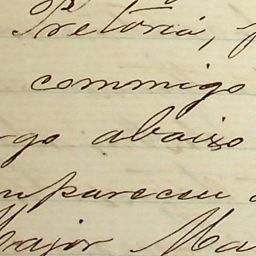 Pretoria,
commigo
rgo abaixo
mpareceu
Major Ma